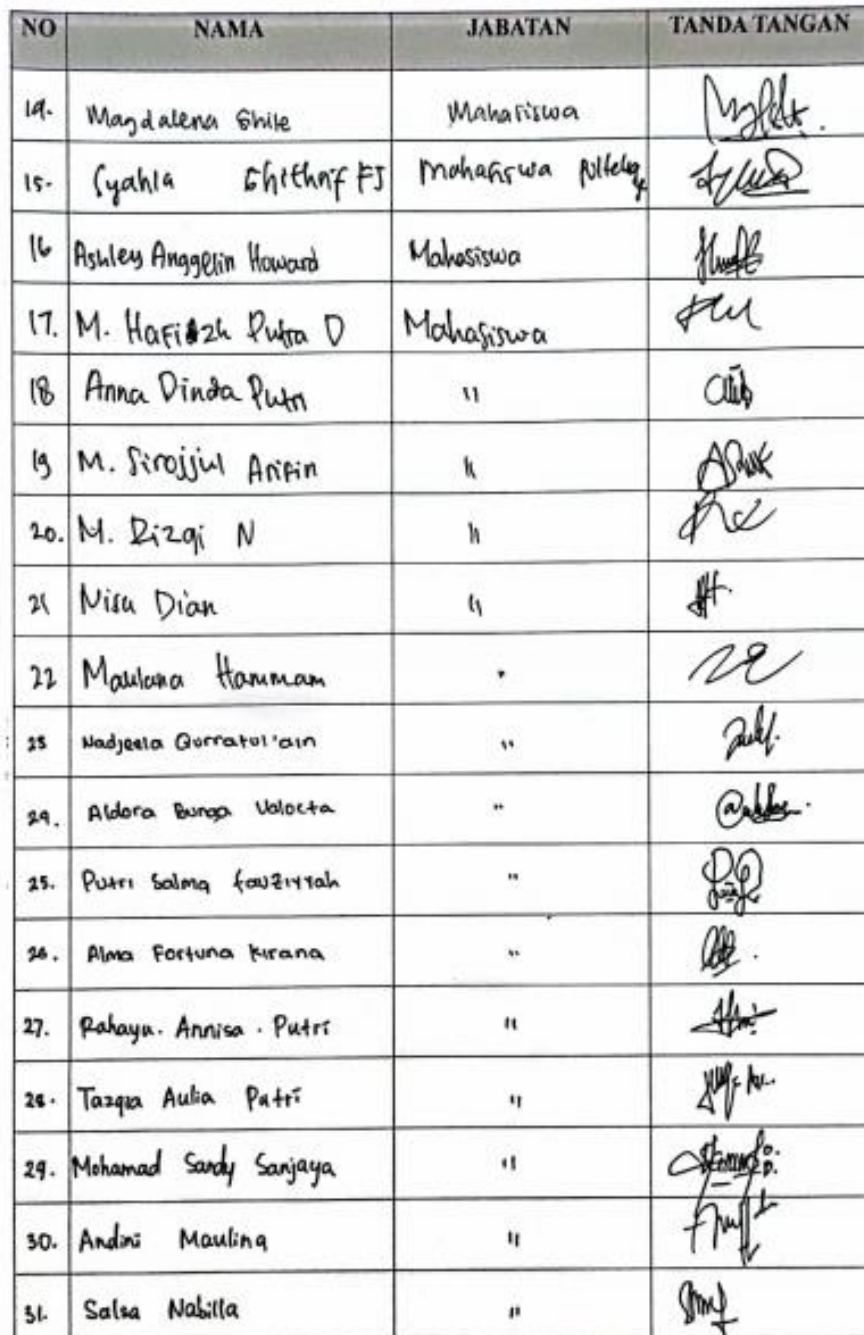 NO NAMA JABATAN TANDA TANGAN
14. Magdalena Shile Mahasiswa
15. Syahla Ghithrif FJ Mahasiswa
16 Ashley Anggelin Howard Mahasiswa
17. M. Hafidzh Putra D Mahasiswa
18 Anna Dinda Putri "
19 M. Sirojjul Arifin "
20. M. Rizqi N "
21 Nisa Dian "
22 Maulana Hammam "
23 Nadjeela Qurratul'ain "
24. Aldora Bunga "
25. Putri Salma fauziyyah "
26. Alma Fortuna Kirana "
27. Rahayu. Annisa. Putri "
28. Tazqia Aulia Putri "
29. Mohamad Sandy Sanjaya "
30. Andini Maulina "
31. Salsa Nabilla "